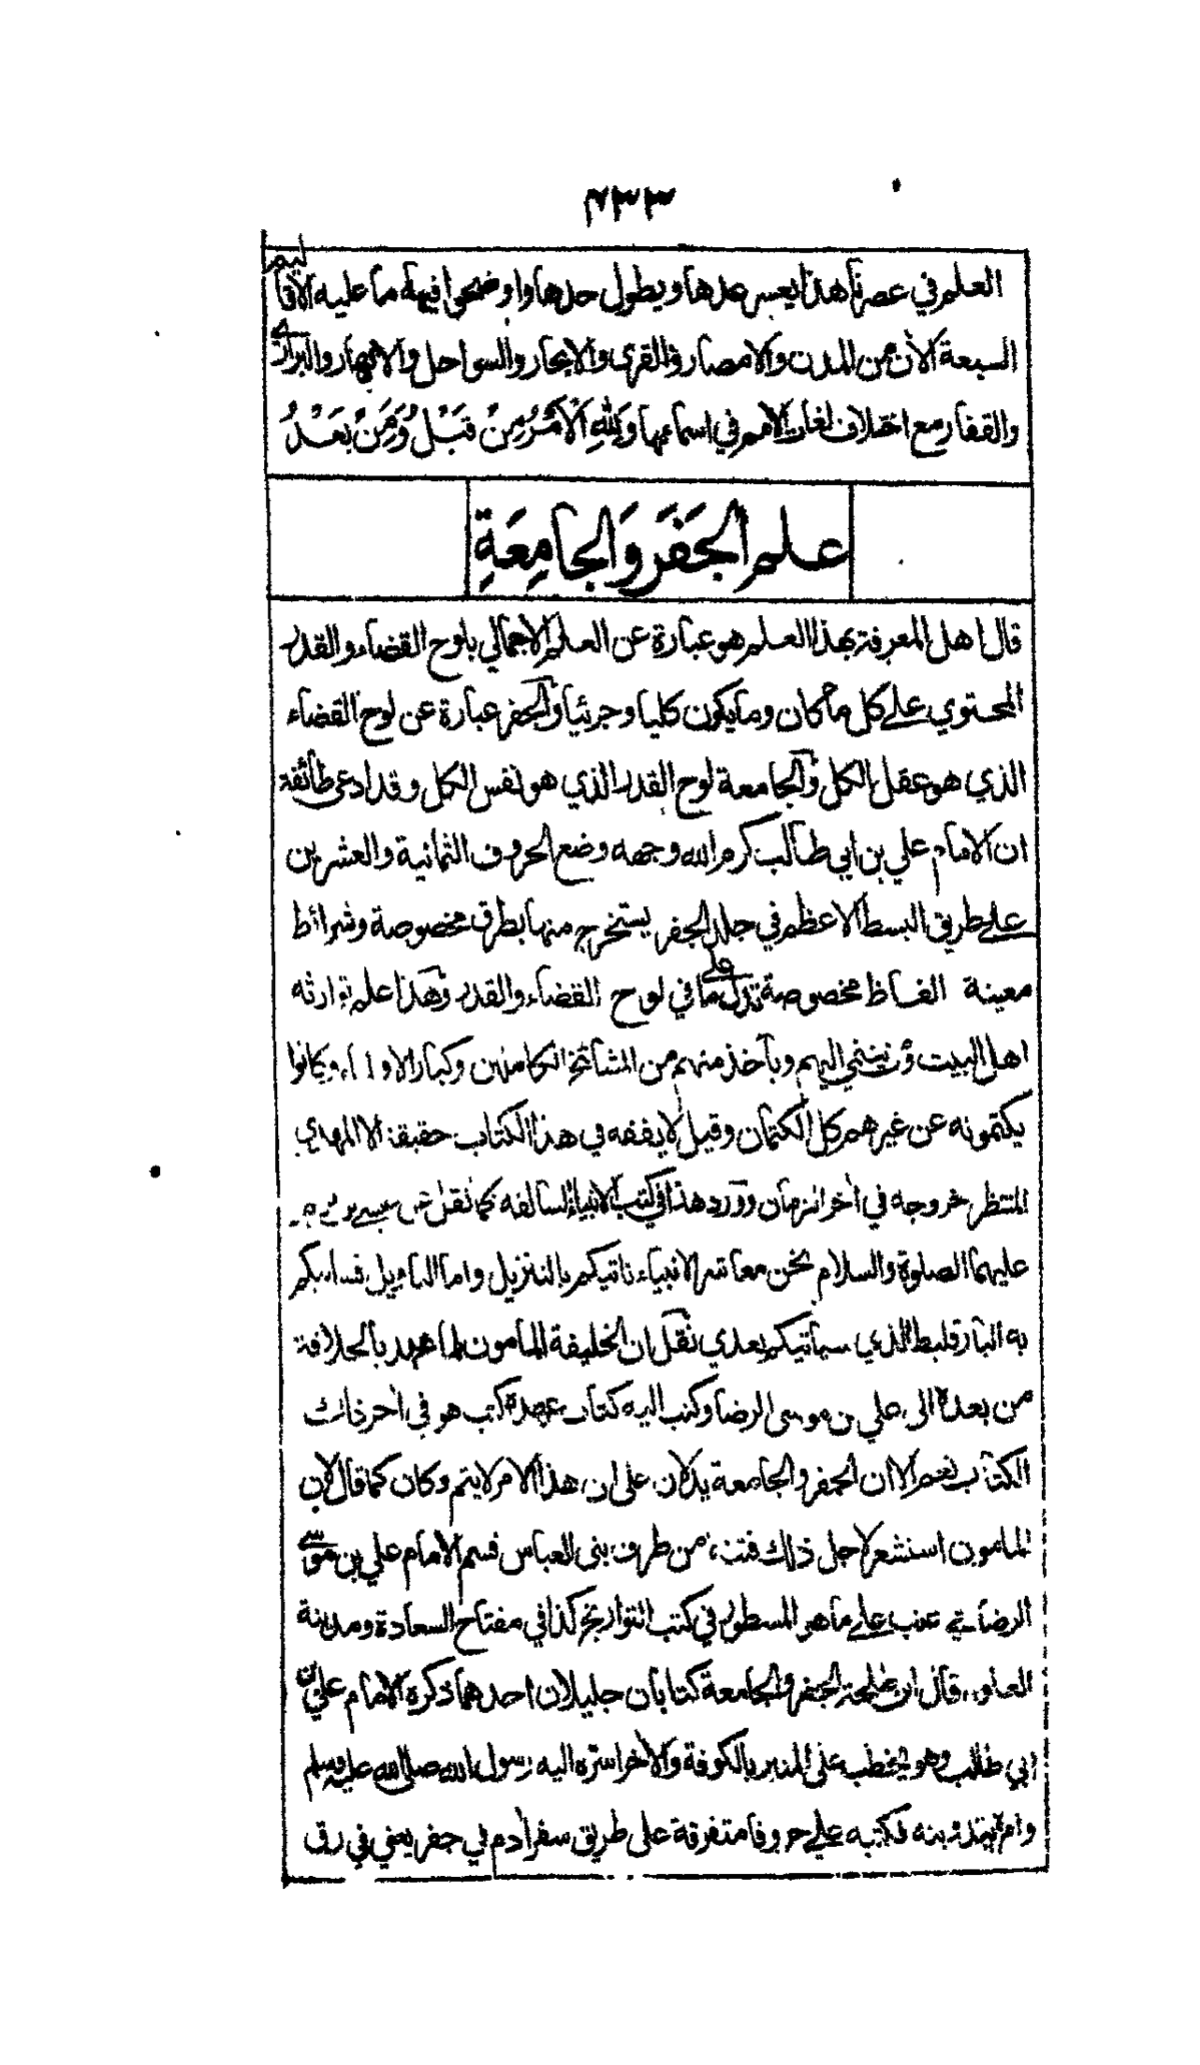 ٤٣٣
العلم في عصرنا هذا يعسر عدها ويطول حدها واوضحوا فيها ما عليه الاقاليم
السبعة الآن من المدن والامصار والقرى والابحار والسواحل والانهار والبراري
والقفار مع اختلاف لغات الامم في اسمائها وَلِلّٰهِ الْاَمْرُ مِنْ قَبْلُ وَمِنْ بَعْدُ
علم الجَفَر وَالجامِعَةِ
قال اهل المعرفة بهذا العلم هو عبارة عن العلم الاجمالي بلوح القضاء والقدر
المحتوي على كل ما كان وما يكون كليا وجزئيا والجفر عبارة عن لوح القضاء
الذي هو عقل الكل والجامعة لوح القدر الذي هو نفس الكل وقد ادعى طائفة
ان الامام علي بن ابي طالب كرم الله وجهه وضع الحروف الثمانية والعشرين
على طريق البسط الاعظم في جلد الجفر يستخرج منها بطرق مخصوصة وشرائط
معينة الفاظ مخصوصة تدل على ما في لوح القضاء والقدر وهذا علم توارثه
اهل البيت ومن ينتمي اليهم ويأخذ منهم من المشائخ الكاملين وكبار الاولياء وكانوا
يكتمونه عن غيرهم كل الكتمان وقيل لا يفقه في هذا الكتاب حقيقة الا المهدي
المنتظر خروجه في آخر الزمان وورد هذا في كتب الانبياء السالفة كما نقل عن عيسى بن مريم
عليهما الصلوة والسلام نحن معاشر الانبياء ناتيكم بالتنزيل واما التاويل فسياتيكم
به البارقليط الذي سياتيكم بعدي نقل ان الخليفة المامون لما عهد بالخلافة
من بعده الى علي بن موسى الرضا وكتب اليه كتاب عهده كتب هو في آخر ذلك
الكتاب نعم الا ان الجفر والجامعة يدلان على ان هذا الامر لا يتم وكان كما قال لان
المامون استشعر لاجل ذلك فتنة من طرف بني العباس فسم الامام علي بن موسى
الرضا في عنب على ما هو المسطور في كتب التواريخ كذا في مفتاح السعادة ومدينة
العلوم قال ابن طلحة الجفر والجامعة كتابان جليلان احدهما ذكره الامام علي بن
ابي طالب وهو يخطب على المنبر بالكوفة والآخر اسره اليه رسول الله صلى الله عليه وسلم
وامره بتدوينه فكتبه علي حروفا متفرقة على طريق سفر آدم في جفر يعني في رق